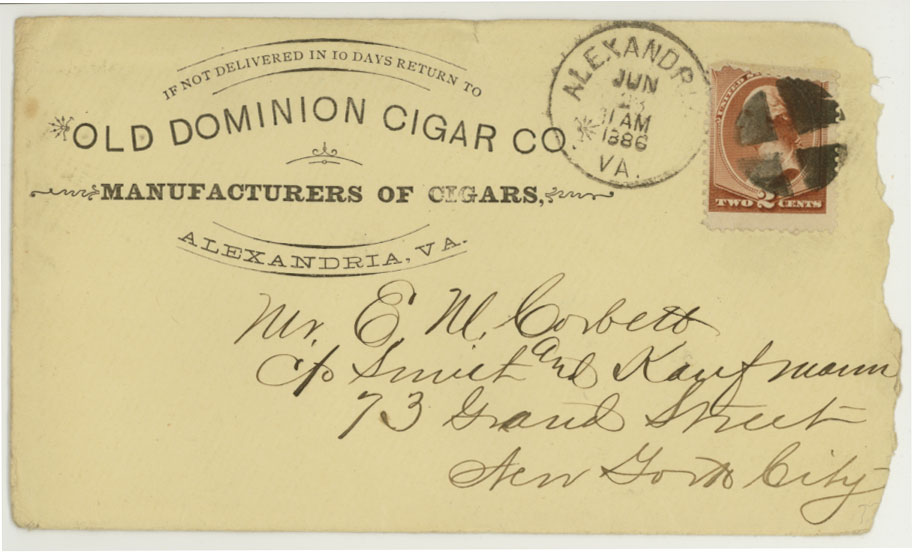 IF NOT DELIVERED IN 10 DAYS RETURN TO
OLD DOMINION CIGAR CO.
MANUFACTURERS OF CIGARS,
ALEXANDRIA, VA.
ALEXANDRI
JUN
11 AM
1886
VA.
UNITED
TWO 2 CENTS
Mr. E. M. Corbett
c/o and Kaufmann
73 Grand Street
New York City